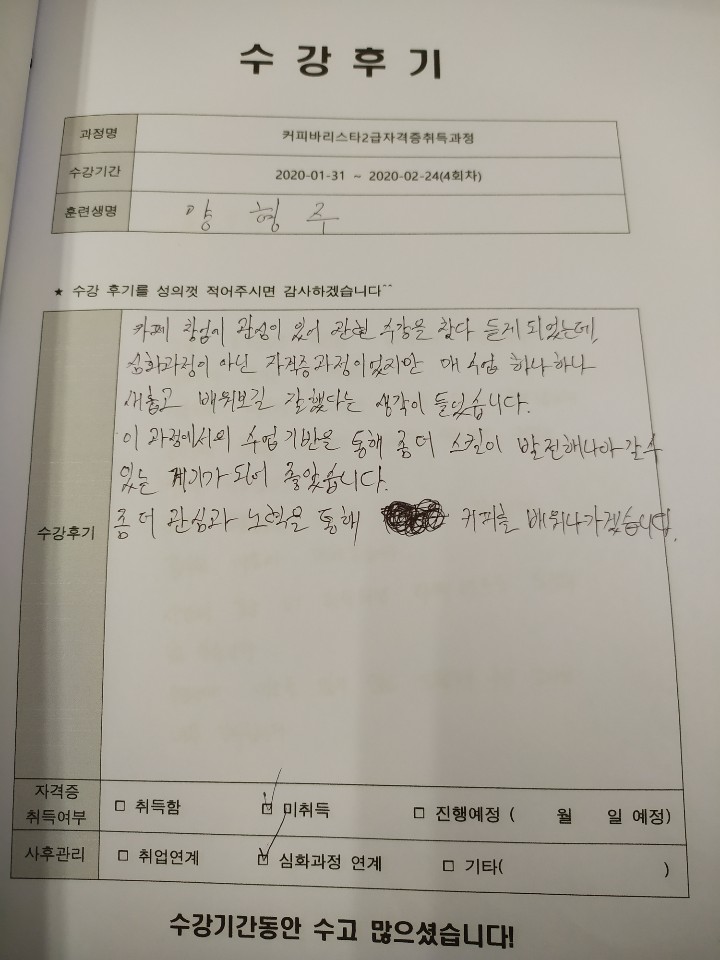 수강후기
과정명 커피바리스타2급자격증취득과정
수강기간 2020-01-31 ~ 2020-02-24(4회차)
훈련생명 양 형 주
★ 수강 후기를 성의껏 적어주시면 감사하겠습니다^^
카페 창업에 관심이 있어 관련 수강을 찾다 듣게 되었는데,
심화과정이 아닌 자격증과정이었지만 매 수업 하나하나
새롭고 배워보길 잘했다는 생각이 들었습니다.
이 과정에서의 수업 기반을 통해 좀 더 스킬이 발전해나아갈 수
있는 계기가 되어 좋았습니다.
수강후기 좀 더 관심과 노력을 통해 커피를 배워나가겠습니다.
자격증
취득여부 □ 취득함 ☑ 미취득 □ 진행예정 ( 월 일 예정)
사후관리 □ 취업연계 ☑ 심화과정 연계 □ 기타( )
수강기간동안 수고 많으셨습니다!